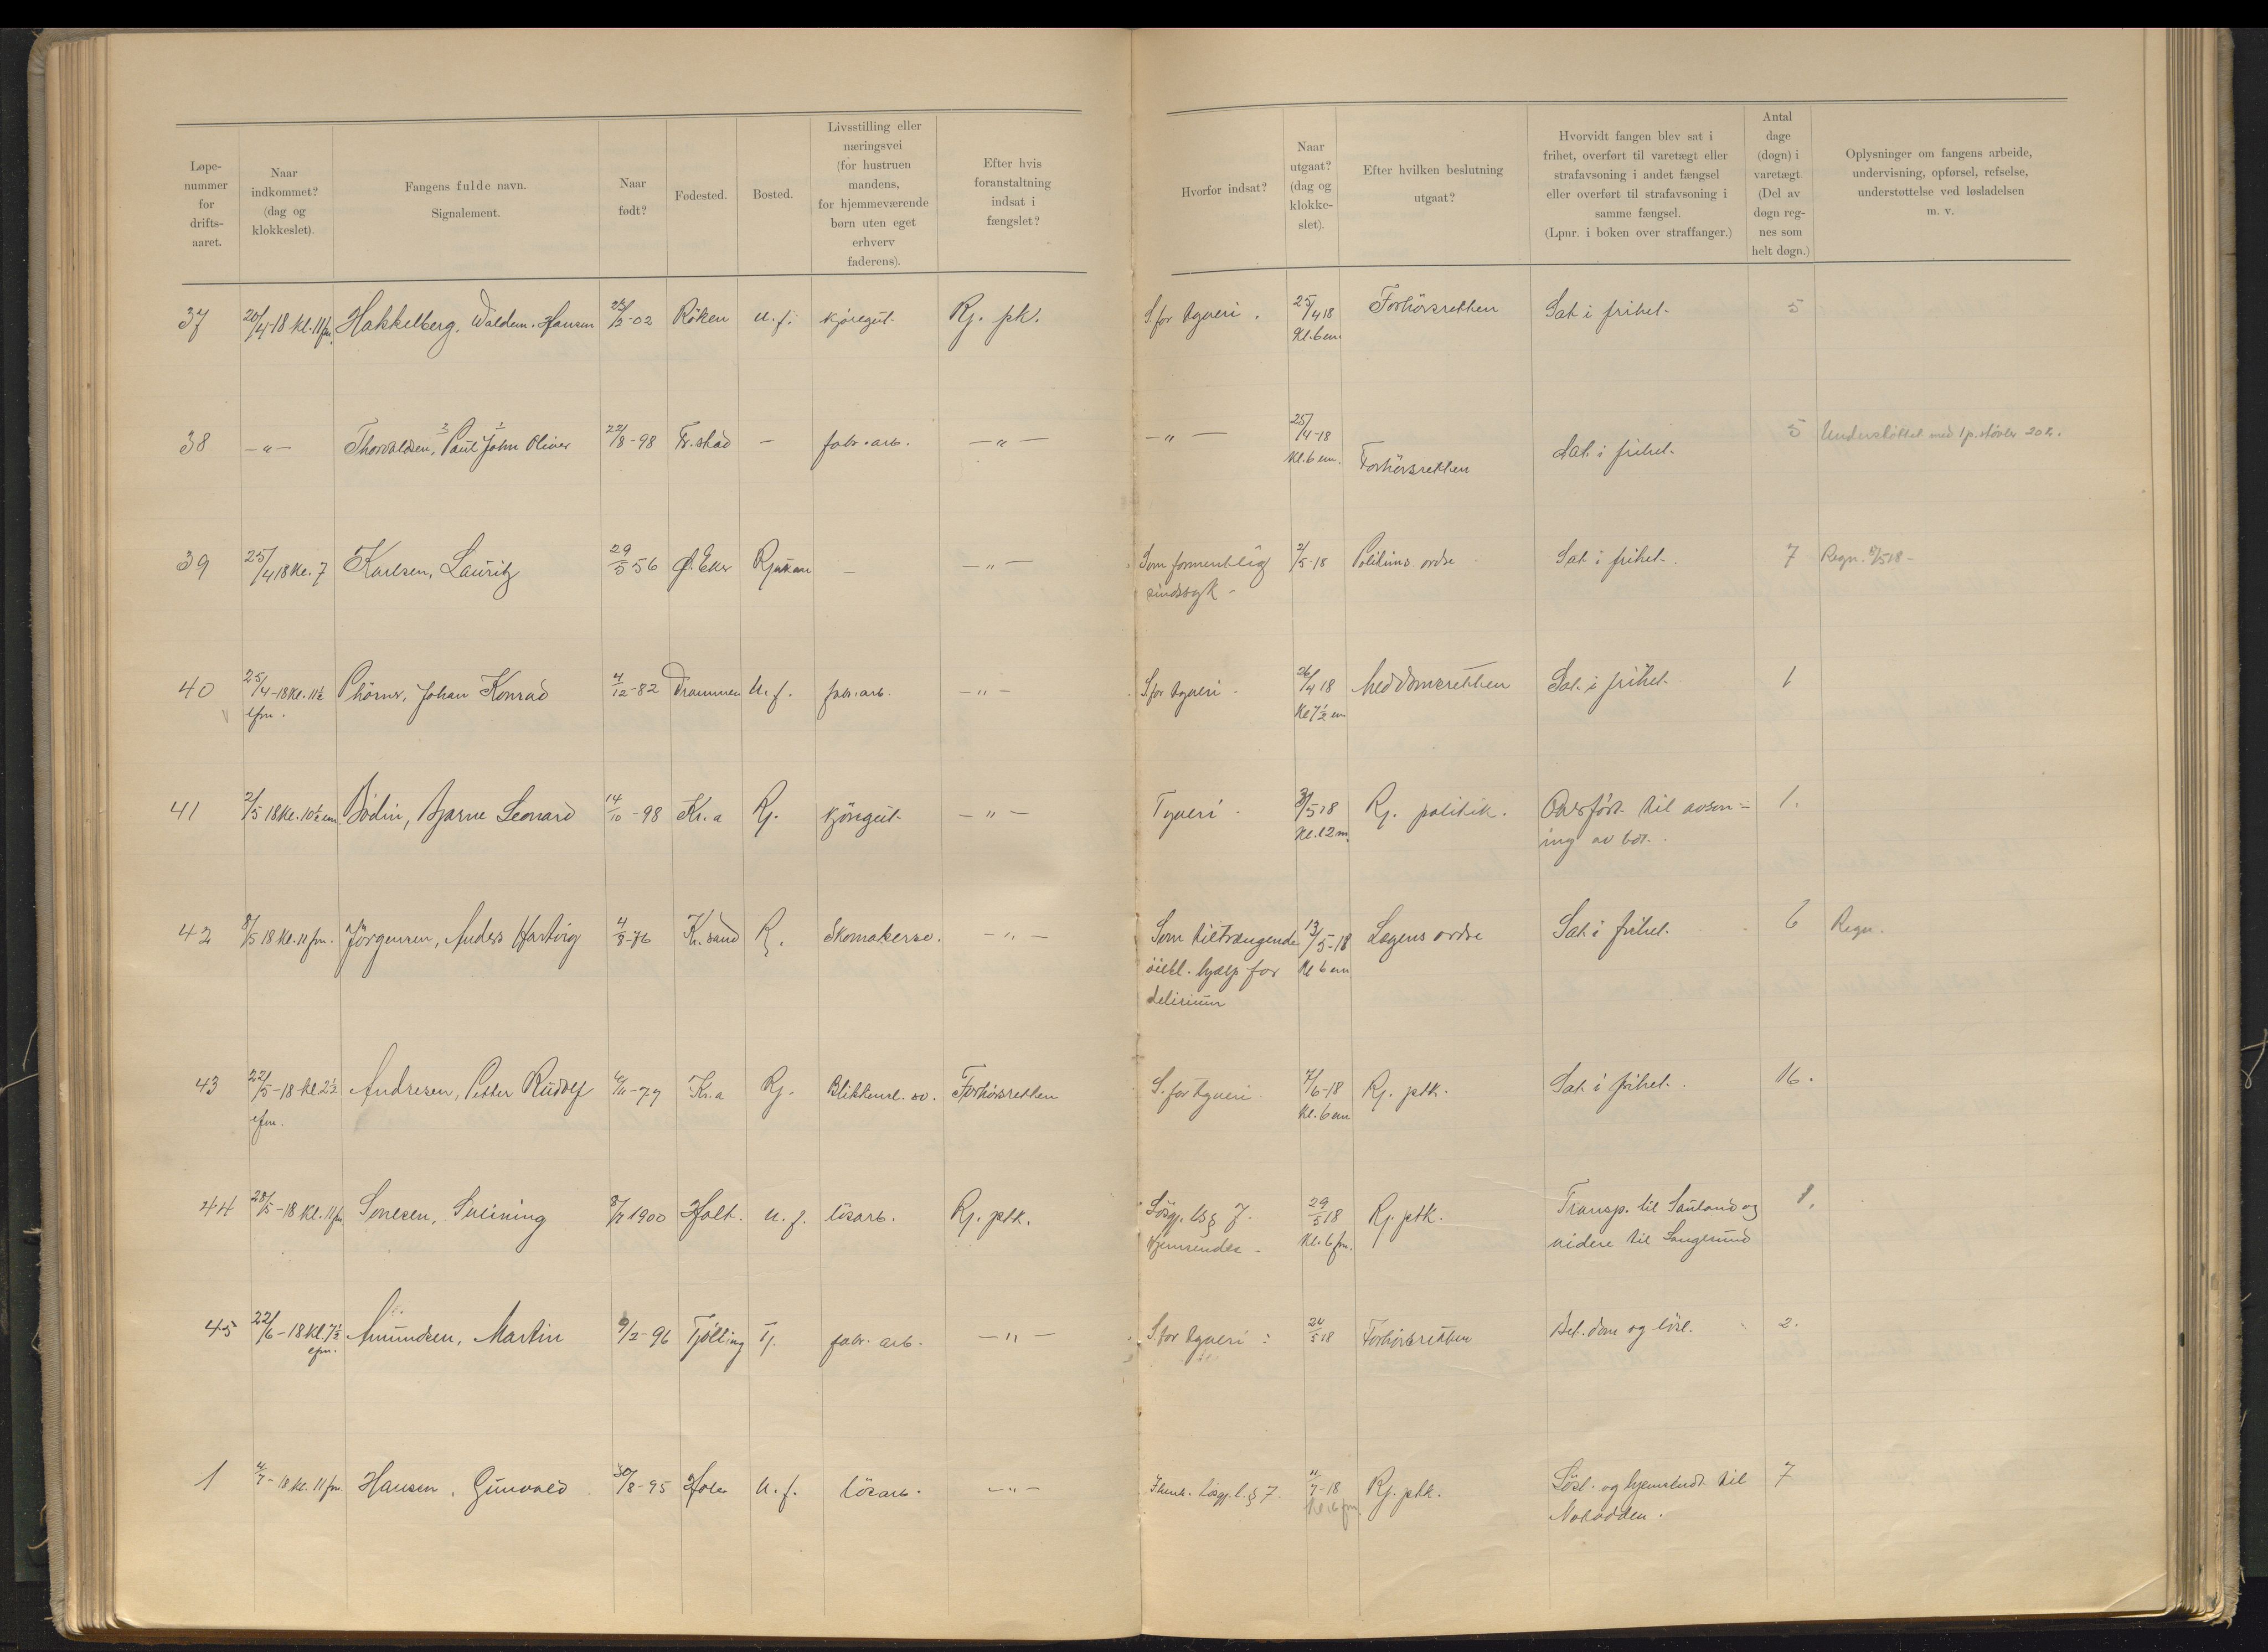 Løpe-
nummer
for
drifts-
aaret.
Naar
indkommet?
(dag og
klokkeslet).
Fangens fulde navn.
Signalement.
Naar
født?
Fødested.
Bosted.
Livsstilling eller
næringsvei
(for hustruen
mandens,
for hjemmeværende
børn uten eget
erhverv
faderens).
Efter hvis
foranstaltning
indsat i
fængslet?
Hvorfor indsat?
Naar
utgaat?
(dag og
klokke-
slet).
Efter hvilken beslutning
utgaat?
Hvorvidt fangen blev sat i
frihet, overført til varetægt eller
strafavsoning i andet fængsel
eller overført til strafavsoning i
samme fængsel.
(Lpnr. i boken over straffanger.)
Antal
dage
(døgn) i
varetægt
(Del av
døgn reg-
nes som
helt døgn.)
Oplysninger om fangens arbeide,
undervisning, opførsel, refselse,
understøttelse ved løsladelsen
m. v.
37 20/4-18 kl. 11 fm. Hakkelberg, Waldem. Hansen -02 Røken U. f. kjøregut Rj. pk. S. for tyveri. 25/4 18 Forhørsretten Sat i frihet 5
Kl. 6 em.
38 -"- Thorvaldsen, Paul John Oliver 22/8-98 Fr.stad - fabr. arb. -"- -"- 25/4-18 Forhørsretten Sat i frihet 5 Understøttet med 1 p. støvler 20 kr.
Kl. 6 em.
39 25/4 18 Kl. 7 Karlsen, Lauritz 29/5 56 Ø. Eker Rjukan - -"- Som formentlig 2/5-18 Politiets ordre Sat i frihet. 7 Regn. 18-
sindssyk -
40 25/4-18 Kl. 11½ Thörnr, Johan Konrad 4/12-82 Drammen U. f. fabr. arb. -"- S. for tyveri - 26/4 18 Meddomsretten Sat i frihet 1
efm. Kl 7½ em
41 2/5 18 Kl. 10½ em Bodin, Bjarne Leonard 14/10-98 Kr.a Rj. kjöregut -"- Tyveri - 3/5 18 Rj. politik. Overført til avson-
Kl. 12 m. ing av bot. 1.
42 8/5 18 Kl. 11 fm. Jörgensen, Anders Hartvig 4/8-76 Kr.sand R. Skomakersv. -"- Som tiltrængende 13/5-18 Lægens ordre Sat i frihet. 6 Regn.
öiebl. hjælp for Kl 6 em
delirium
43 22/5-18 kl 2½ Andresen, Petter Rudolf -79 Kr.a Rj. Blikkensl. sv. Forhörsretten S. for tyveri 7/6-18 Rj. ptk. Sat i frihet. 16.
efm. Kl. 6 em
44 28/5-18 Kl. 11 fm Sveining 8/7 1900 Holt. U. f. lösarb. Rj. ptk. Lösgj. l. § 7. 29/5 18 Rj. ptk. Transp. til Sauland og 1.
Hjemsendes - Kl. 6 fm. videre til Langesund
45 22/6-18 Kl. 7½ Amundsen, Martin 9/2-96 Tjölling Tj. fabr. arb. -"- S. for tyveri 24/5 18 Forhörsretten Bet. dom og lösl. 2.
efm.
1 4/7-18 kl. 11 fm Hansen, Gunvald 30/8-95 Holen U. f. lösarb. -"- Lösgj. l. § 7. 11/7-18 Rj. ptk. Lösl. og hjemsendt til 7
Notodden.